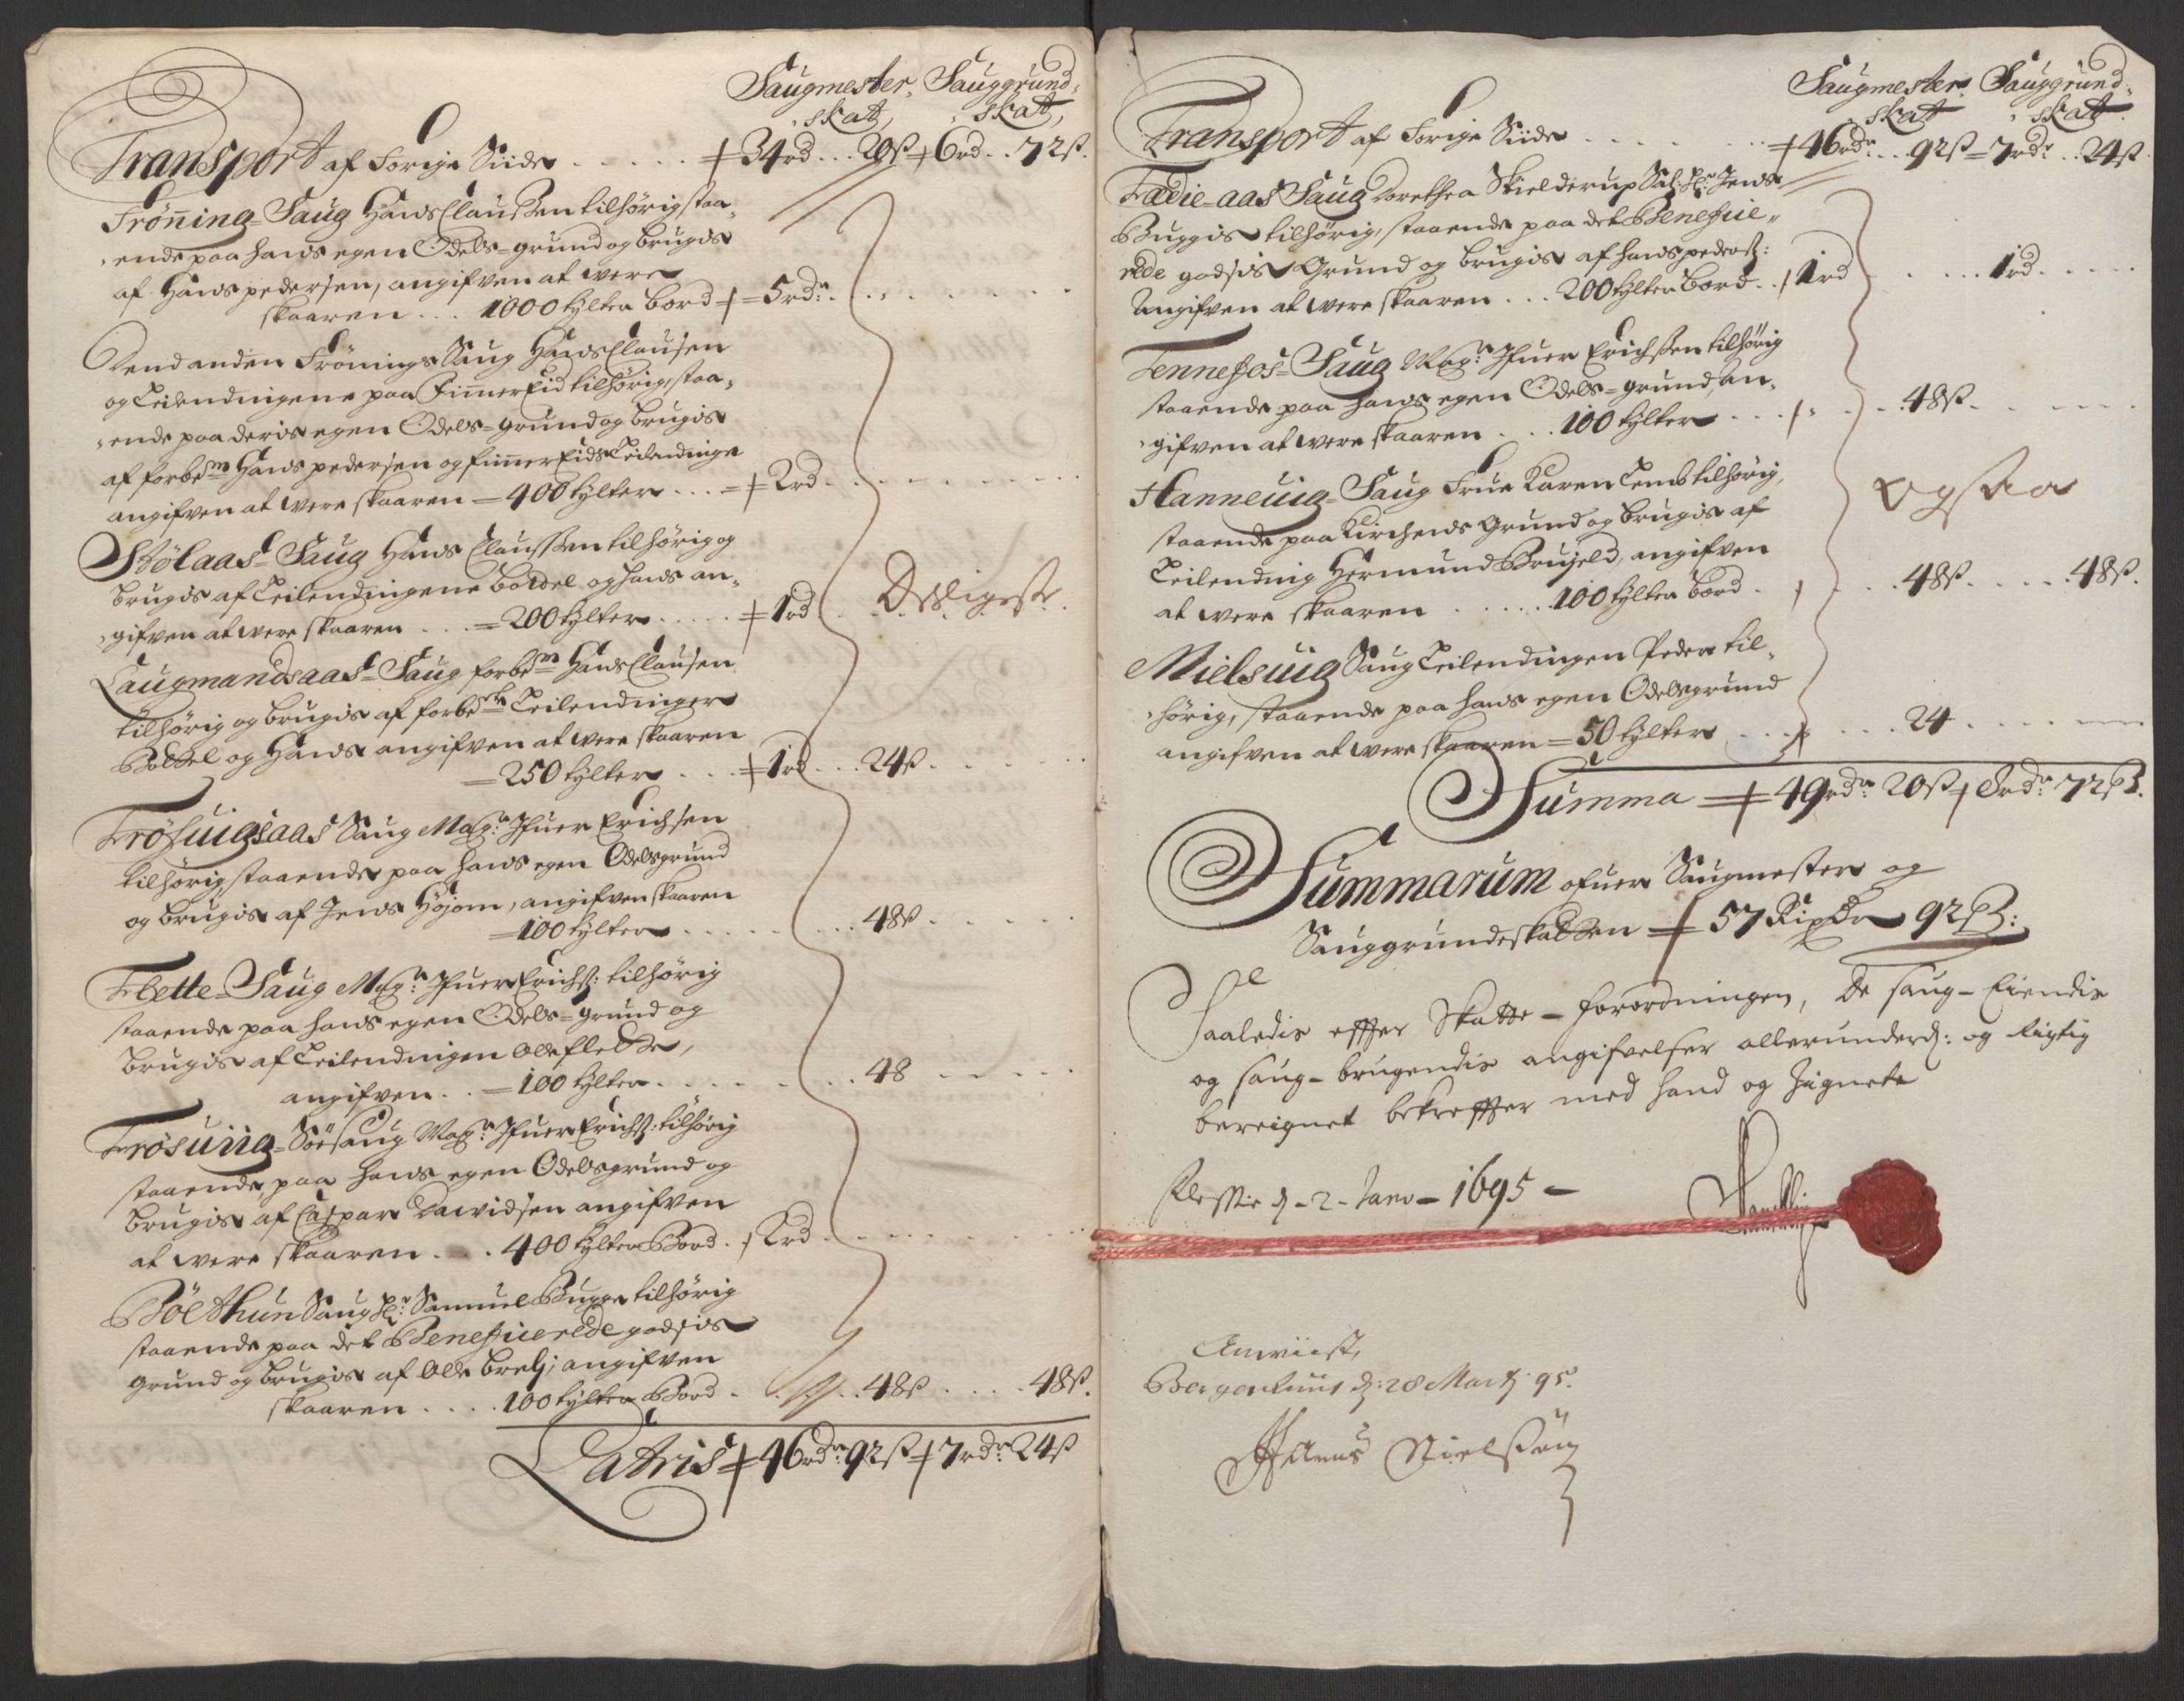 Saugmester, Sauggrund,
skatt, skatt,
Transport af forrige Siide ..... 34 rd .. 20 ß 6 rd .. 72 ß.
Fröning-Saug Hans Claussen tilhörig staa-
ende paa hans egen Odels-grund og brugis
af Hans pedersen, angifven at were
skaaren ... 1000 tylter bord = 5 rdr.
Dend anden Frönings Saug Hans Clausen
og Leilendingene paa Fimmereid tilhörig, staa-
ende paa deris egen Odels-grund og brugis
af forbem: Hans pedersen og fimmereids Leilendinge
angifven at were skaaren = 400 tylter ... 2 rd
Stölaas-Saug Hans Claussen tilhörig og
brugis af Leilendingene Botdel og Hans an-
gifven at were skaaren ... = 200 tylter ..... 1 rd
Desligeste
Laugmandsaas-Saug forbem: Hans Clausen
tilhörig og brugis af forbete Leilendinger
Botdel og Hans angifven at were skaaren
= 250 tylter ... 1 rd ... 24 ß
Fröfuigsaas Saug Magr: Ifuer Erichsen
tilhörig, staaende paa hans egen Odelsgrund
og brugis af Jens Höjom, angifven skaaren
= 100 tylter ..... 48 ß
Flette-Saug Magr: Ifuer Erichs: tilhörig
staaende paa hans egen Odels-grund og
brugis af Leilendingen Ole flette,
angifven .. = 100 tylter ..... 48
Frösuiig-Söe saug Magr: Ifuer Erichs: tilhörig
staaende, paa hans egen Odelsgrund og
brugis af Caspar Dawidsen angifven
at were skaaren ... 400 tylter Bord . 2 rd
Böethun Saug Hr: Samuel Bugge tilhörig
staaende paa det Beneficerede godsis
grund og brugis af Ole brelj; angifven
skaaren .... 100 tylter Bord ... 48 ß .... 48 ß.
Latris 46 rdr: 92 ß 7 rdr: 24 ß
Saugmester Sauggrund-
skatt skatt.
Transport af forrige Siide ..... 46 rdr: .. 92 ß = 7 rdr: .. 24 ß
Fædie-aas Saug Dorethea Skielderup Sal: Hr: Jens
Buggis tilhörig, staaende paa det Beneficie-
rede godsis Grund og brugis af hans peders:
Angifven at were skaaren ... 200 tylter Bord .. 1 rd ..... 1 rd
Tennefos-Saug Magr: Ifuer Erichssen tilhörig
staaende paa hans egen Odels-grund, an-
gifven at were skaaren ... 100 tylter ... 48 ß
Hanneuig-Saug Frue Karen Lems tilhörig,
staaende paa Kirchens Grund og brugis af
Leilending Hermund Brujeld, angifven
at were skaaren ..... 100 tylter bord . 48 ß .... 48 ß.
ogsaa
Nielsuig Saug Leilendingen Peder til-
hörig, staaende paa hans egen Odelsgrund
angifven at were skaaren = 50 tylter ... 24
Summa 49 rdr: 20 ß 8 rdr: 72 ß.
Summarum ofuer Saugmester og
Sauggrundeskatten 57 Rixdr 92 ß:
Saaledis effter Skatte-forordningen, de saug-Eiendis
og saug-brugendis angifvelser allerunderd: og rigtig
beregnet bekreffter med hand og Zignete
d-2-Janv-1695-
Anwiist,
Bergenhuus d: 28 Martj: 95.
Hanns Nielssön